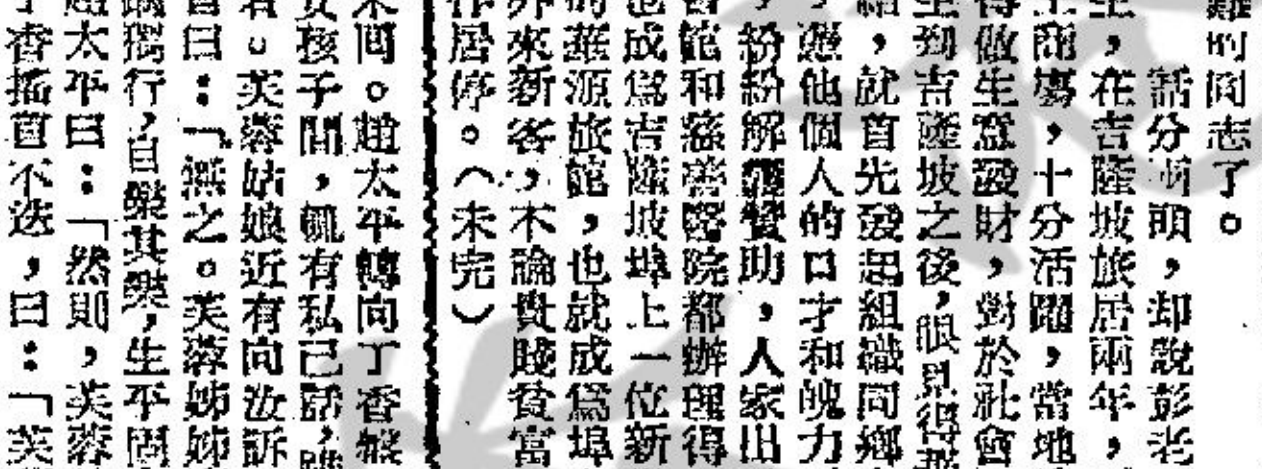 難的同志了。
話分兩頭，却說彭老
生，在吉隆坡旅居兩年，
商塲，十分活躍，當地
得做生意發財，對於社會
到吉隆坡之後，眼見得
，就首先發起組織同鄉
，憑他個人的口才和魄力
，紛紛解囊贊助，人家出
館和慈善醫院都辦理得
也成爲吉隆坡埠上一位新
的華源旅館，也就成爲埠
外來新客，不論貴賤貧富
作居停。（未完）
間。趙太平轉向丁香盤
女孩子間，輒有私己話，
。芙蓉姑娘近有向汝訴
曰：「無之。芙蓉姊姊
獨行，自樂其樂，生平
趙太平曰：「然則，芙蓉
丁香搖首不迭，曰：「芙